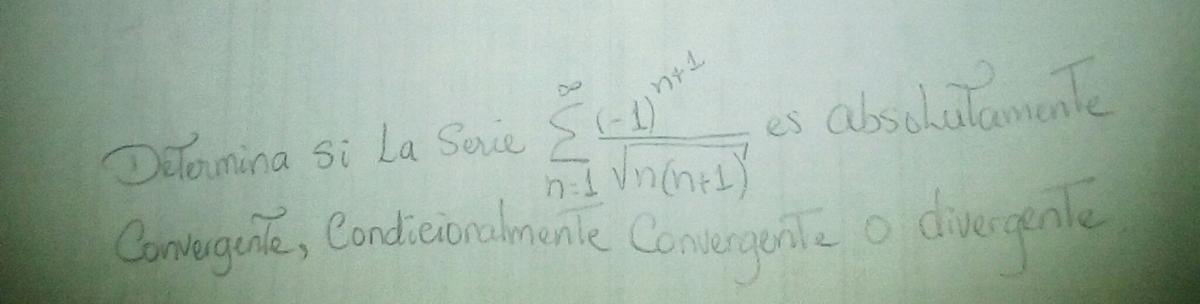 Determina si La Serie $\sum_{n=1}^{\infty} \frac{(-1)^{n+1}}{\sqrt{n(n+1)}}$ es absolutamente
Convergente, Condicionalmente Convergente o divergente.